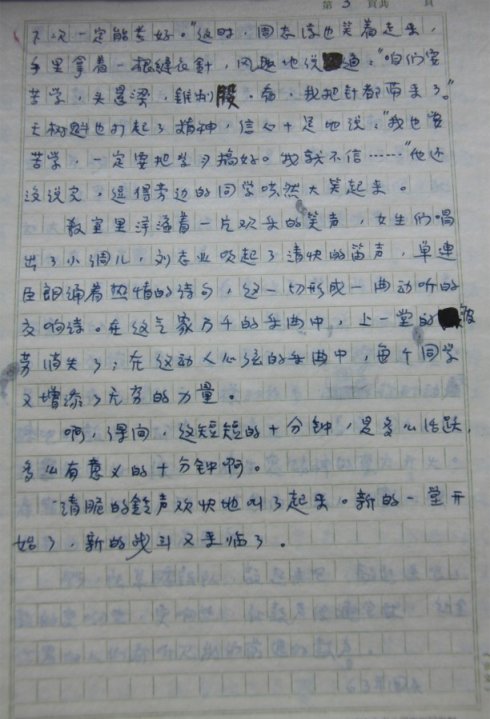 第 3 頁共 頁
下次一定能考好。"这时,周志沛也笑着走来,
手里拿着一根缝衣針,风趣地说道:"咱们穷
苦学,头悬梁,錐刺股。看,我把針都带来了。"
王树魁也打起了精神,信心十足地说:"我也要
苦学,一定要把学习搞好。我就不信……"他还
没说完,逗得旁边的同学哄然大笑起来。
教室里浮荡着一片欢乐的笑声,女生们唱
出了小调儿,刘志业吹起了清快的笛声,单连
臣朗诵着热情的诗句,这一切形成一曲动听的
交响诗。在这气象万千的乐曲中,上一堂的疲
劳消失了,在这动人心弦的乐曲中,每个同学
又增添了无穷的力量。
啊,课间,这短短的十分钟,是多么活跃,
多么有意义的十分钟啊。
清脆的鈴声欢快地叫了起来。新的一堂开
始了,新的战斗又来临了。